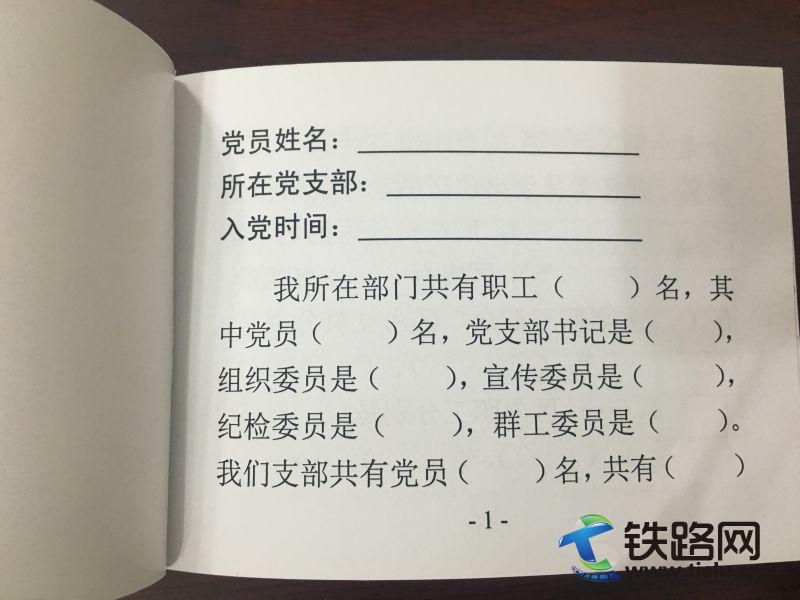 党员姓名：
所在党支部：
入党时间：
我所在部门共有职工（　　）名，其
中党员（　　）名，党支部书记是（　　），
组织委员是（　　），宣传委员是（　　），
纪检委员是（　　），群工委员是（　　）。
我们支部共有党员（　　）名，共有（　　）
- 1 -
铁路网